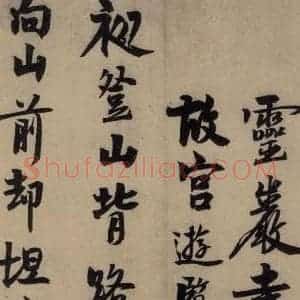 靈巖寺
故宮遊
初登山背路
向山前却坦
Shufazilian.COM